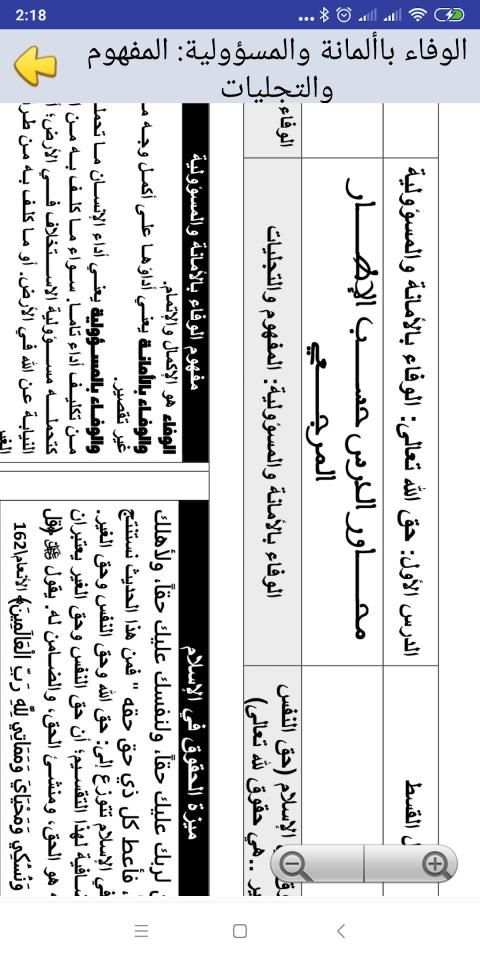 2:18
الوفاء باألمانة والمسؤولية: المفهوم
والتجليات
الدرس الأول: حق الله تعالى: الوفاء بالأمانة والمسؤولية
محـــاور الدرس حســـب الإطـــار
المرجـــعي
الوفاء بالأمانة والمسؤولية: المفهوم والتجليات
الوفاء
القسط
الإسلام (حق النفس
هي حقوق لله تعالى)
مفهوم الوفاء بالأمانة والمسؤولية
الوفاء هو الإكمال والإتمام.
والوفاء بالأمانة يعني أداؤها على أكمل وجه
غير تقصير.
والوفاء بالمسؤولية يعني أداء الإنسان ما تحمل
من تكليف أداء تاما. سواء ما كلف به من
كتحمله مسؤولية الاستخلاف في الأرض؛
النيابة عن الله في الأرض. أو ما كلف به من
الغير
ميزة الحقوق في الإسلام
لربك عليك حقاً، ولنفسك عليك حقاً، ولأهلك
فأعط كل ذي حق حقه " فمن هذا الحديث نستنتج
في الإسلام تتوزع إلى: حق الله وحق النفس وحق الغير.
لهذا التقسيم؛ أن حق النفس وحق الغير يعتبران
هو الحق، ومنشئ الحق، والضامن له. يقول ﷻ ﴿قل
وَنُسُكِي وَمَحْيَايَ وَمَمَاتِي لِلَّهِ رَبِّ الْعَالَمِينَ﴾ الأنعام\162